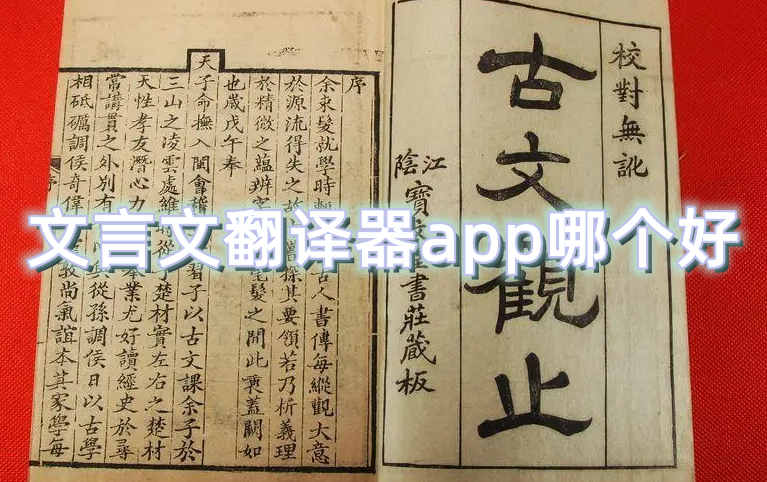 文言文翻译器app哪个好
校對無訛
古文觀止
江陰寶書莊藏板
序
余束髮就學時古人書傳每縱觀大意
於源流得失之故嘗探其要領若乃析義理
於精微之蘊辨毫髮之間此衷蓋闕如
也歲戊午奉
天子命撫入閩會稽習子以古文課余子於
三山之凌雲處維從子楚材實左右之楚材
天性孝友潛心力業尤好讀經史於尋
常講貫之外別有從孫調侯日以古學
相砥礪調侯奇偉敦尚氣誼本其家學每
序